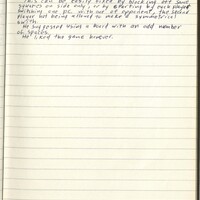 This can be easily fixed by blocking off some
squares on side only, or by starting by each player
switching one pc. with one of opponent, the second
player not being allowed to make a symmetrical
switch.
He suggested using a board with an odd number
of spaces.
He liked the game however.